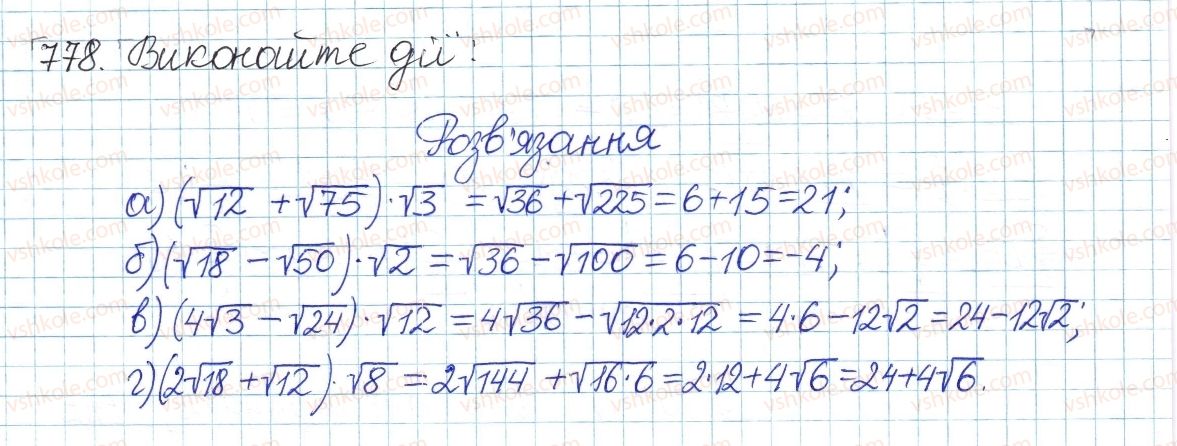 778. Виконайте дії:
Розв'язання
а) (√12 + √75) · √3 = √36 + √225 = 6 + 15 = 21;
б) (√18 − √50) · √2 = √36 − √100 = 6 − 10 = −4;
в) (4√3 − √24) · √12 = 4√36 − √12·2·12 = 4·6 − 12√2 = 24 − 12√2;
г) (2√18 + √12) · √8 = 2√144 + √16·6 = 2·12 + 4√6 = 24 + 4√6.